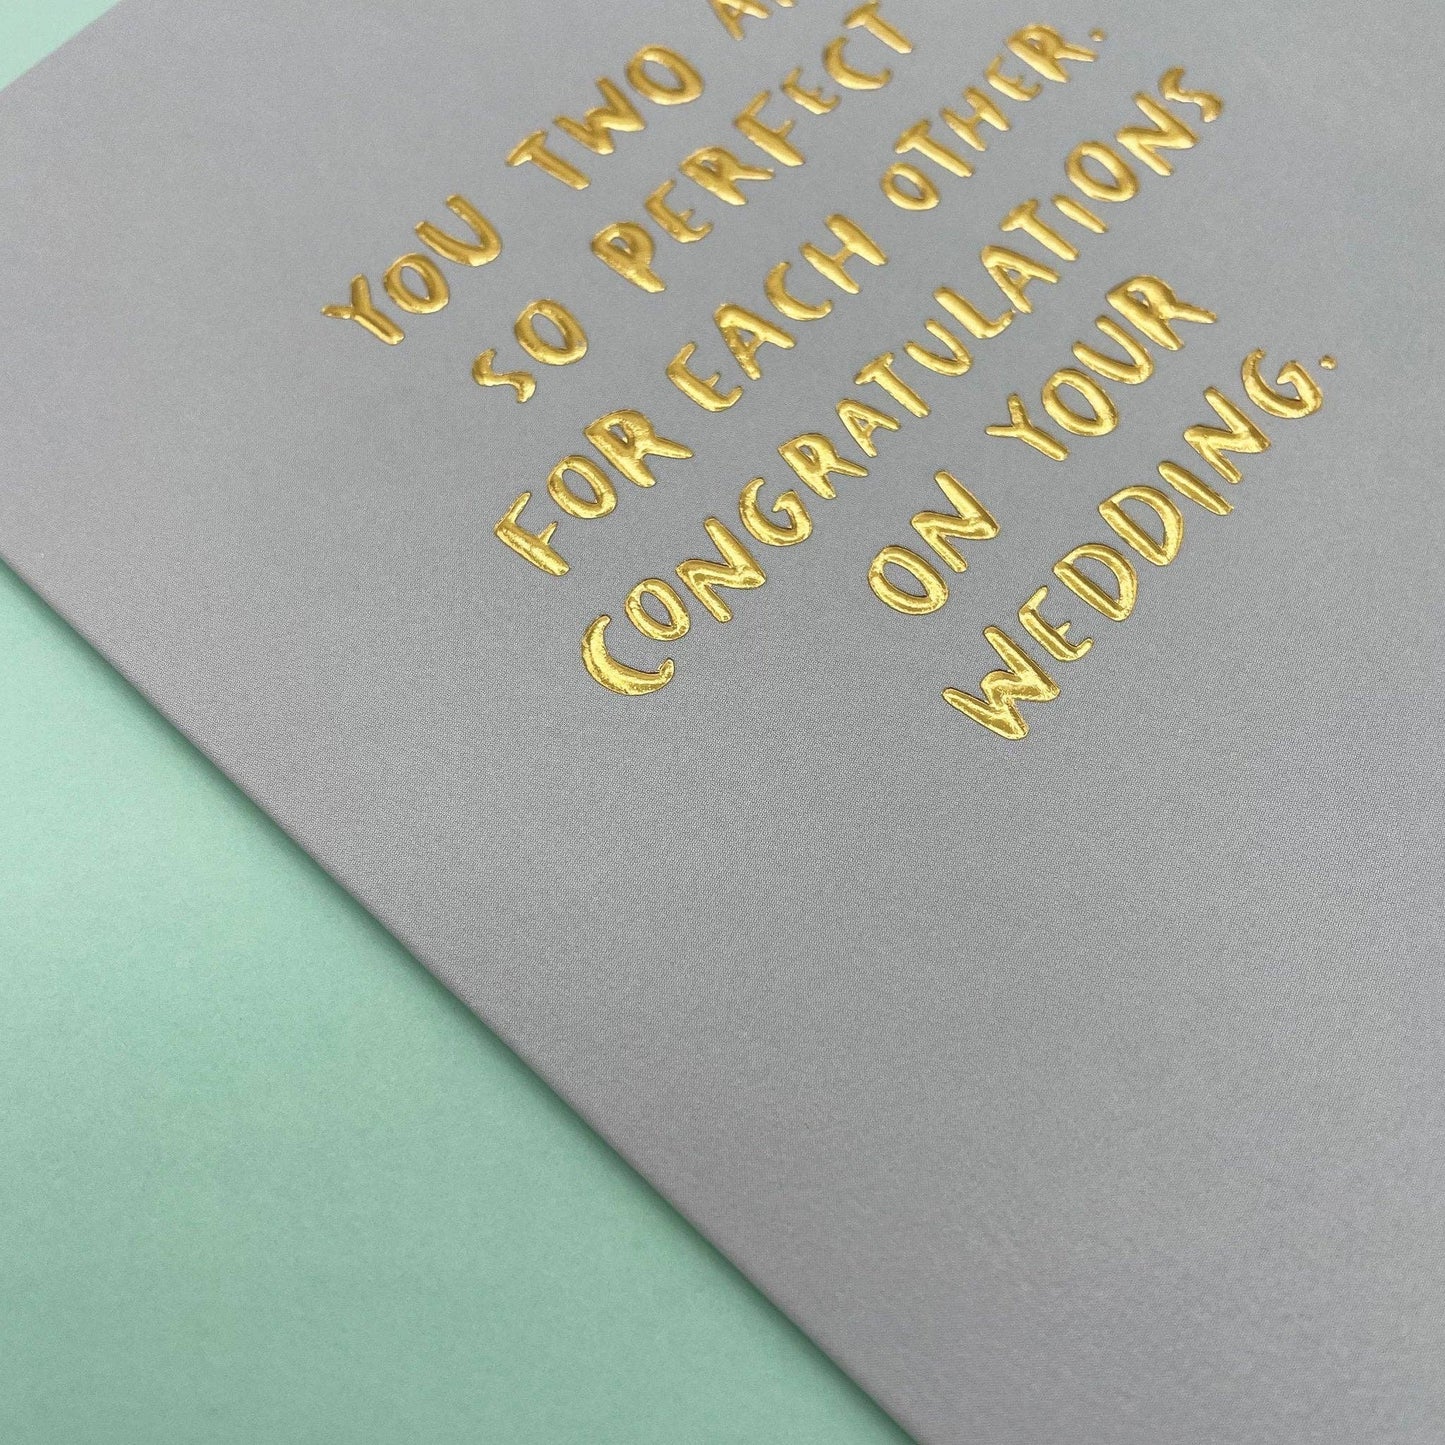 YOU TWO
SO PERFECT
FOR EACH OTHER.
CONGRATULATIONS
ON YOUR
WEDDING.